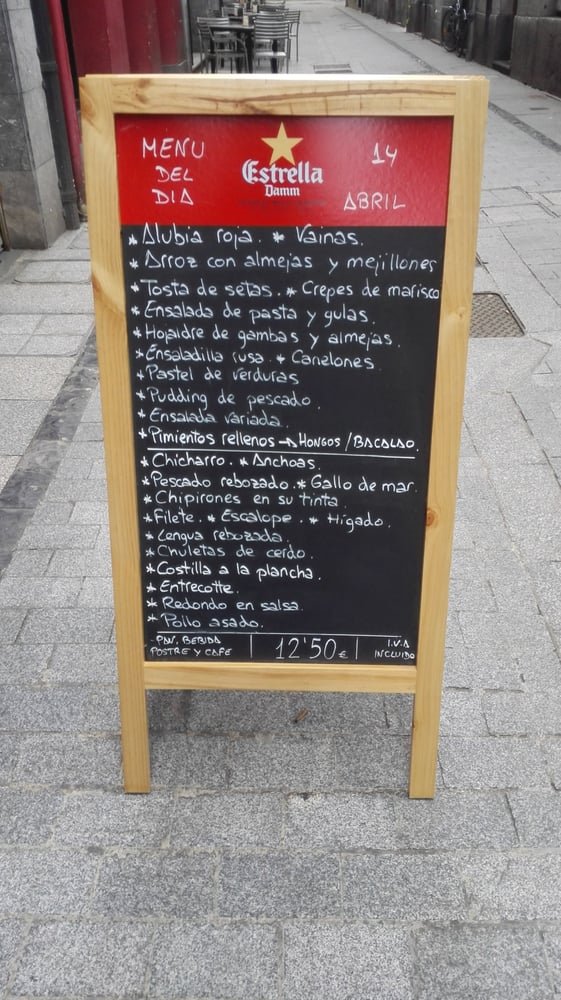 MENU DEL DIA
Estrella
Damm
14 ABRIL
* Alubia roja. * Vainas.
* Arroz con almejas y mejillones
* Tosta de setas. * Crepes de marisco
* Ensalada de pasta y gulas.
* Hojaldre de gambas y almejas.
* Ensaladilla rusa. * Canelones.
* Pastel de verduras
* Pudding de pescado.
* Ensalada variada.
* Pimientos rellenos → HONGOS / BACALAO.
* Chicharro. * Anchoas.
* Pescado rebozado. * Gallo de mar.
* Chipirones en su tinta
* Filete. * Escalope. * Higado.
* Lengua rebozada.
* Chuletas de cerdo.
* Costilla a la plancha.
* Entrecotte.
* Redondo en salsa.
* Pollo asado.
- PAN, BEBIDA POSTRE Y CAFE | 12'50 € | I.V.A INCLUIDO